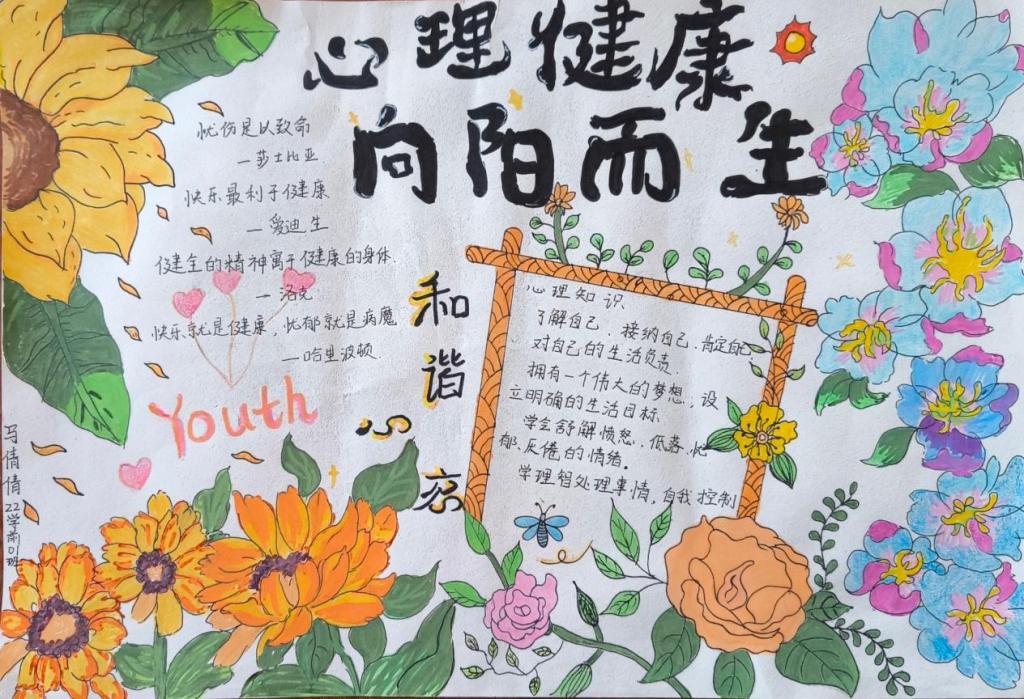 心理健康
向阳而生
忧伤足以致命
—莎士比亚
快乐最利于健康
—爱迪生
健全的精神寓于健康的身体.
—洛克
快乐就是健康，忧郁就是病魔
—哈里波顿.
Youth
和谐心
心理知识
了解自己、接纳自己、肯定自己
对自己的生活负责.
拥有一个伟大的梦想，设
立明确的生活目标
学会舒解愤怒、低落、忧
郁、厌倦的情绪。
学理智处理事情，自我控制
马倩倩22学前01班